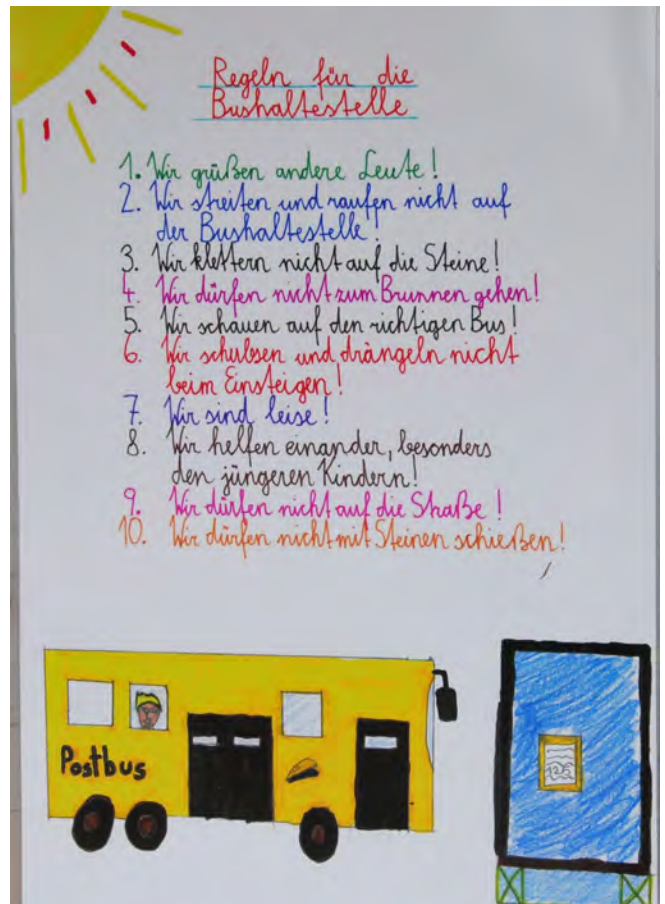 Regeln für die
Bushaltestelle
1. Wir grüßen andere Leute!
2. Wir streiten und raufen nicht auf
der Bushaltestelle!
3. Wir klettern nicht auf die Steine!
4. Wir dürfen nicht zum Brunnen gehen!
5. Wir schauen auf den richtigen Bus!
6. Wir schubsen und drängeln nicht
beim Einsteigen!
7. Wir sind leise!
8. Wir helfen einander, besonders
den jüngeren Kindern!
9. Wir dürfen nicht auf die Straße!
10. Wir dürfen nicht mit Steinen schießen!
Postbus